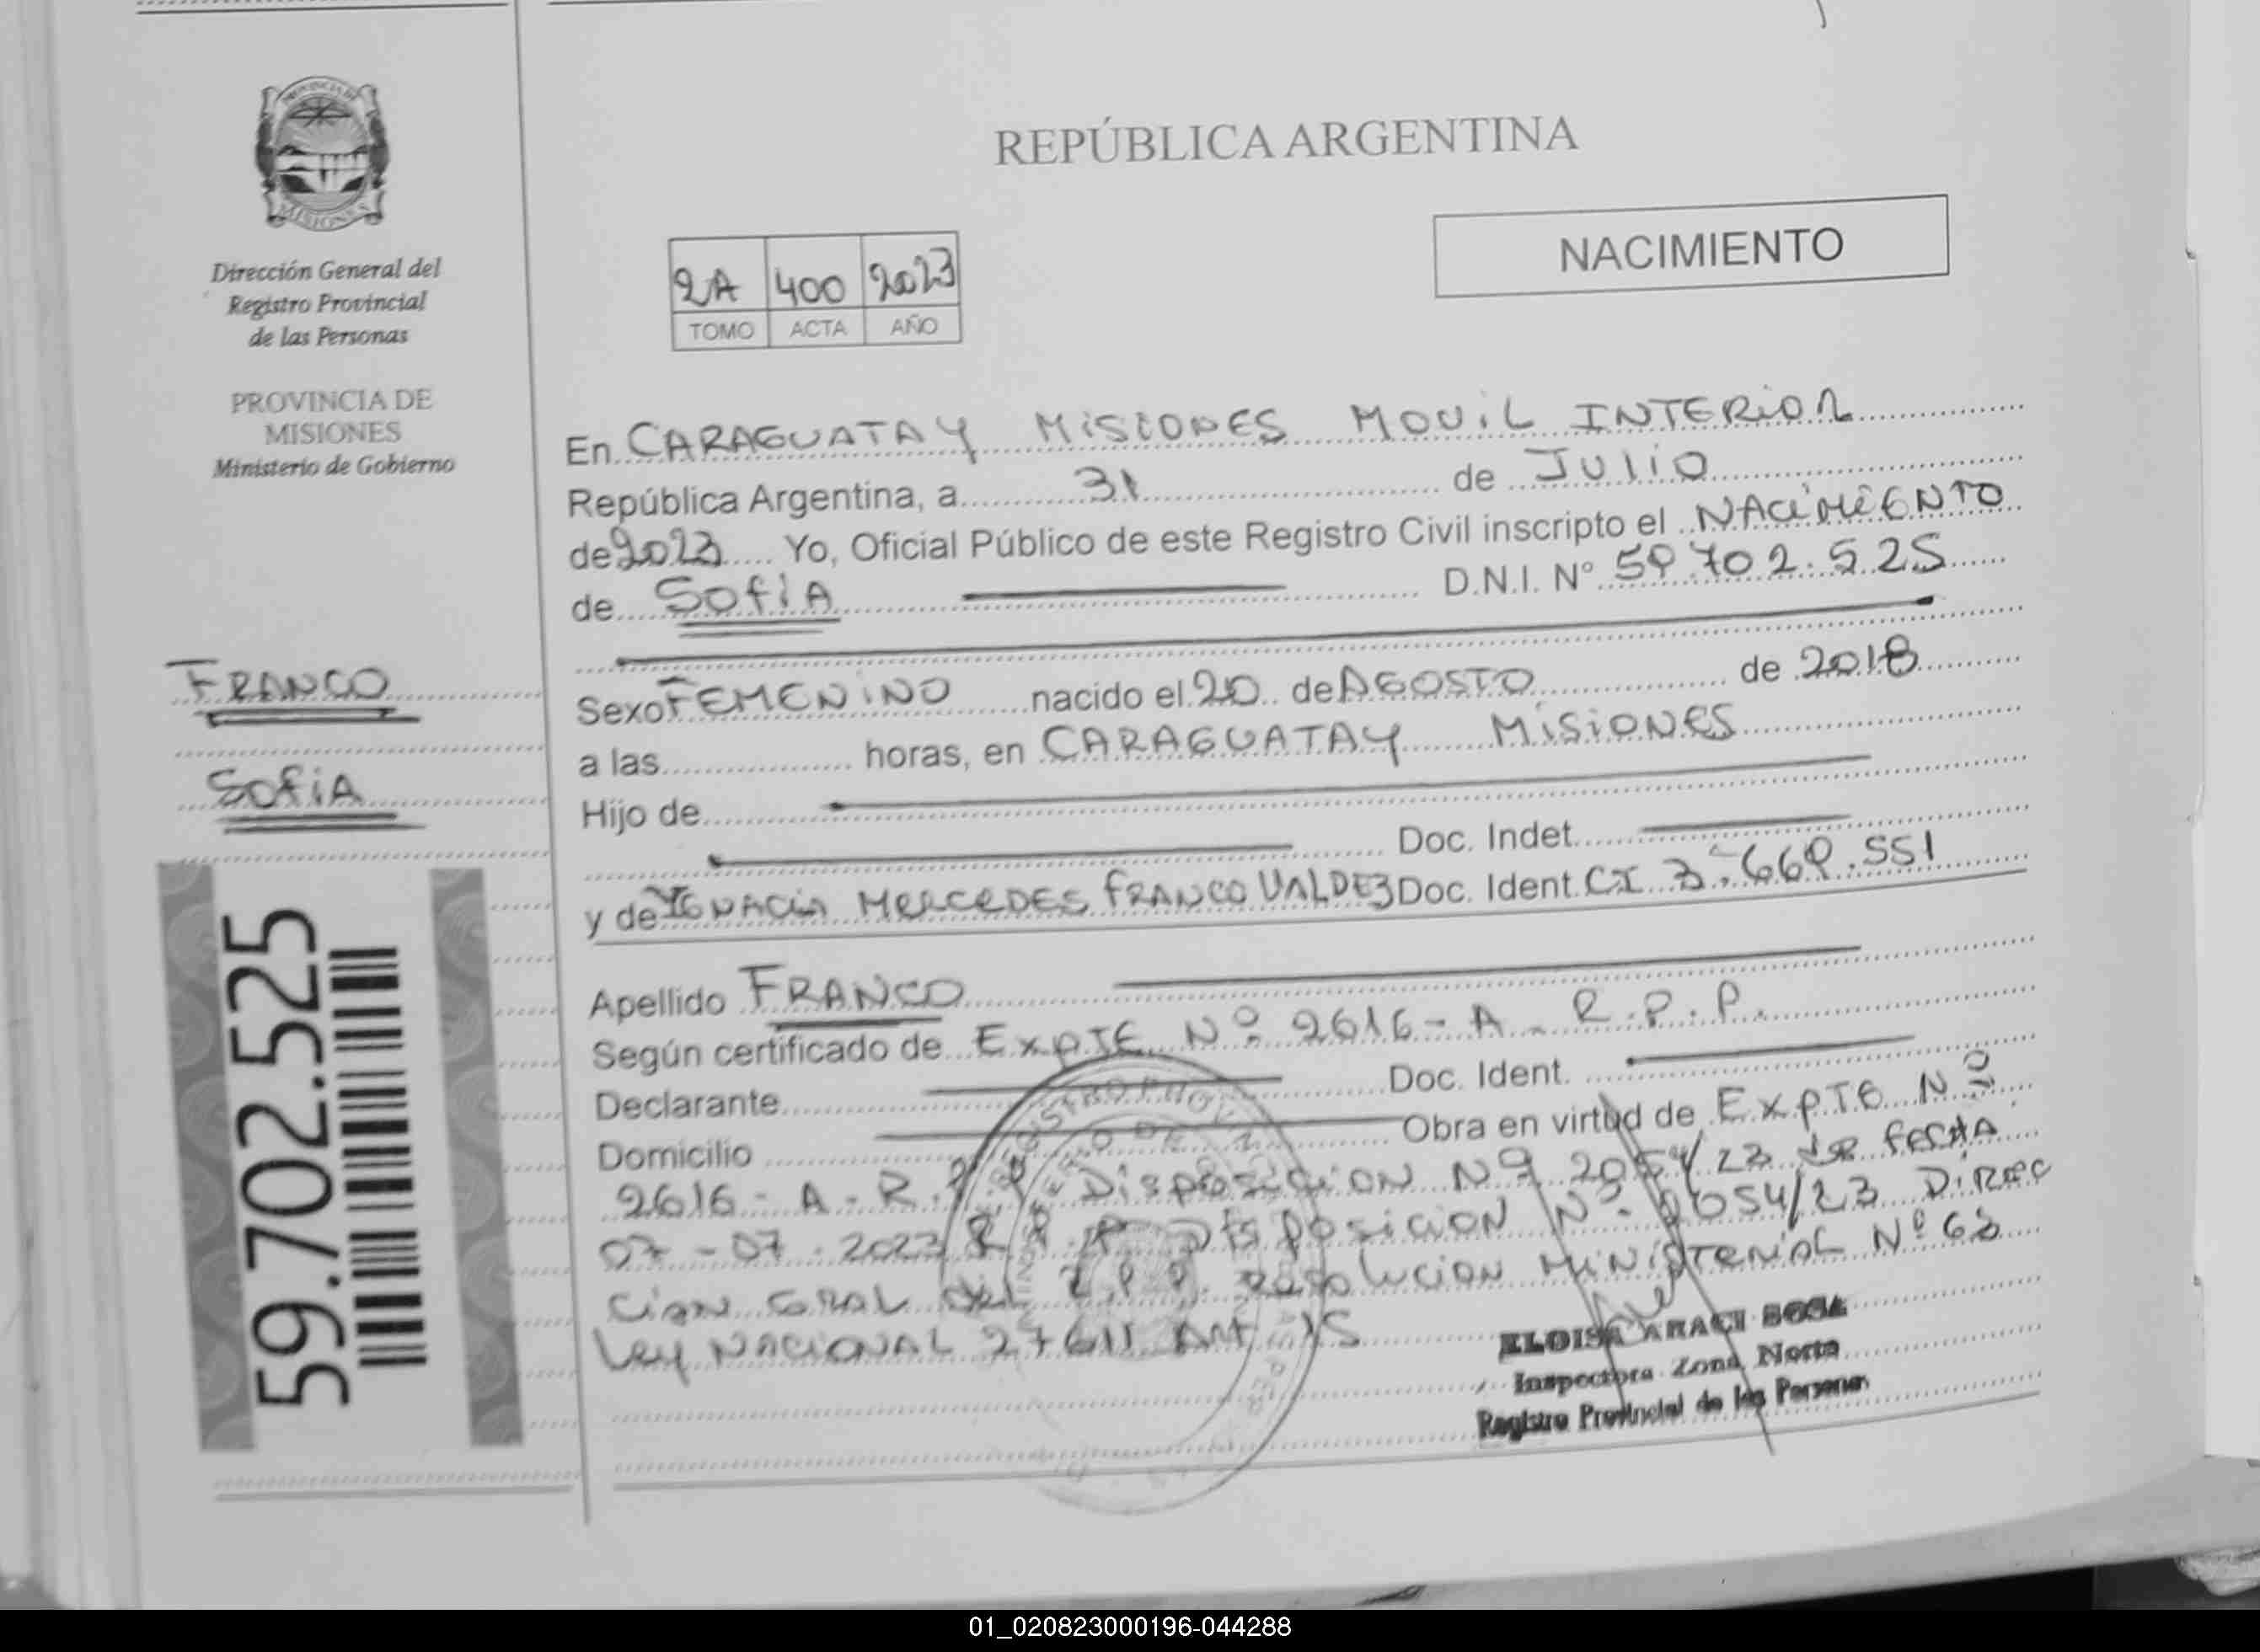 REPÚBLICA ARGENTINA
NACIMIENTO
Dirección General del
Registro Provincial
de las Personas
PROVINCIA DE
MISIONES
Ministerio de Gobierno
2A 400 2023
TOMO ACTA AÑO
FRANCO
Sofia
59.702.525
En CARAGUATAY MISIONES MOVIL INTERIOR
República Argentina, a 31 de JULIO
de 2023 Yo, Oficial Público de este Registro Civil inscripto el NACIMIENTO
de Sofia D.N.I. N° 59.702.525
Sexo FEMENINO nacido el 20 de AGOSTO de 2018
a las horas, en CARAGUATAY MISIONES
Hijo de
Doc. Indet.
y de IGNACIA MERCEDES FRANCO VALDEZ Doc. Ident. CI 3.669.551
Apellido FRANCO
Según certificado de EXPTE Nº 2616-A-R.P.P.
Declarante Doc. Ident.
Domicilio Obra en virtud de EXPTE Nº
2616-A-R. Disposicion Nº 2054/23 de fecha
07-07-2023 R.P.P. Disposicion Nº 2054/23 DIREC
CION GRAL DEL R.P.P. Resolucion MINISTERIAL Nº 63
Ley NACIONAL 27611 Art 15
ELOISA ARACI SOSA
Inspectora Zona Norte
Registro Provincial de las Personas
01_020823000196-044288